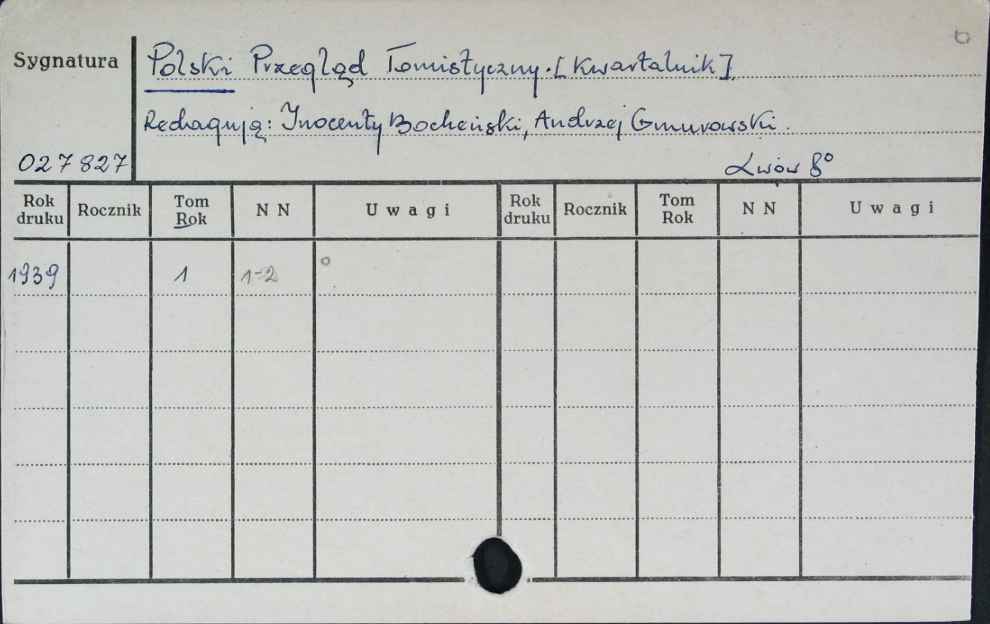 Sygnatura Polski Przegląd Tomistyczny. [Kwartalnik]
Redagują: Inocenty Bocheński, Andrzej Gmurowski.
027827 Lwów 8°
Rok druku Rocznik Tom Rok N N Uwagi Rok druku Rocznik Tom Rok N N Uwagi
1939 1 1-2